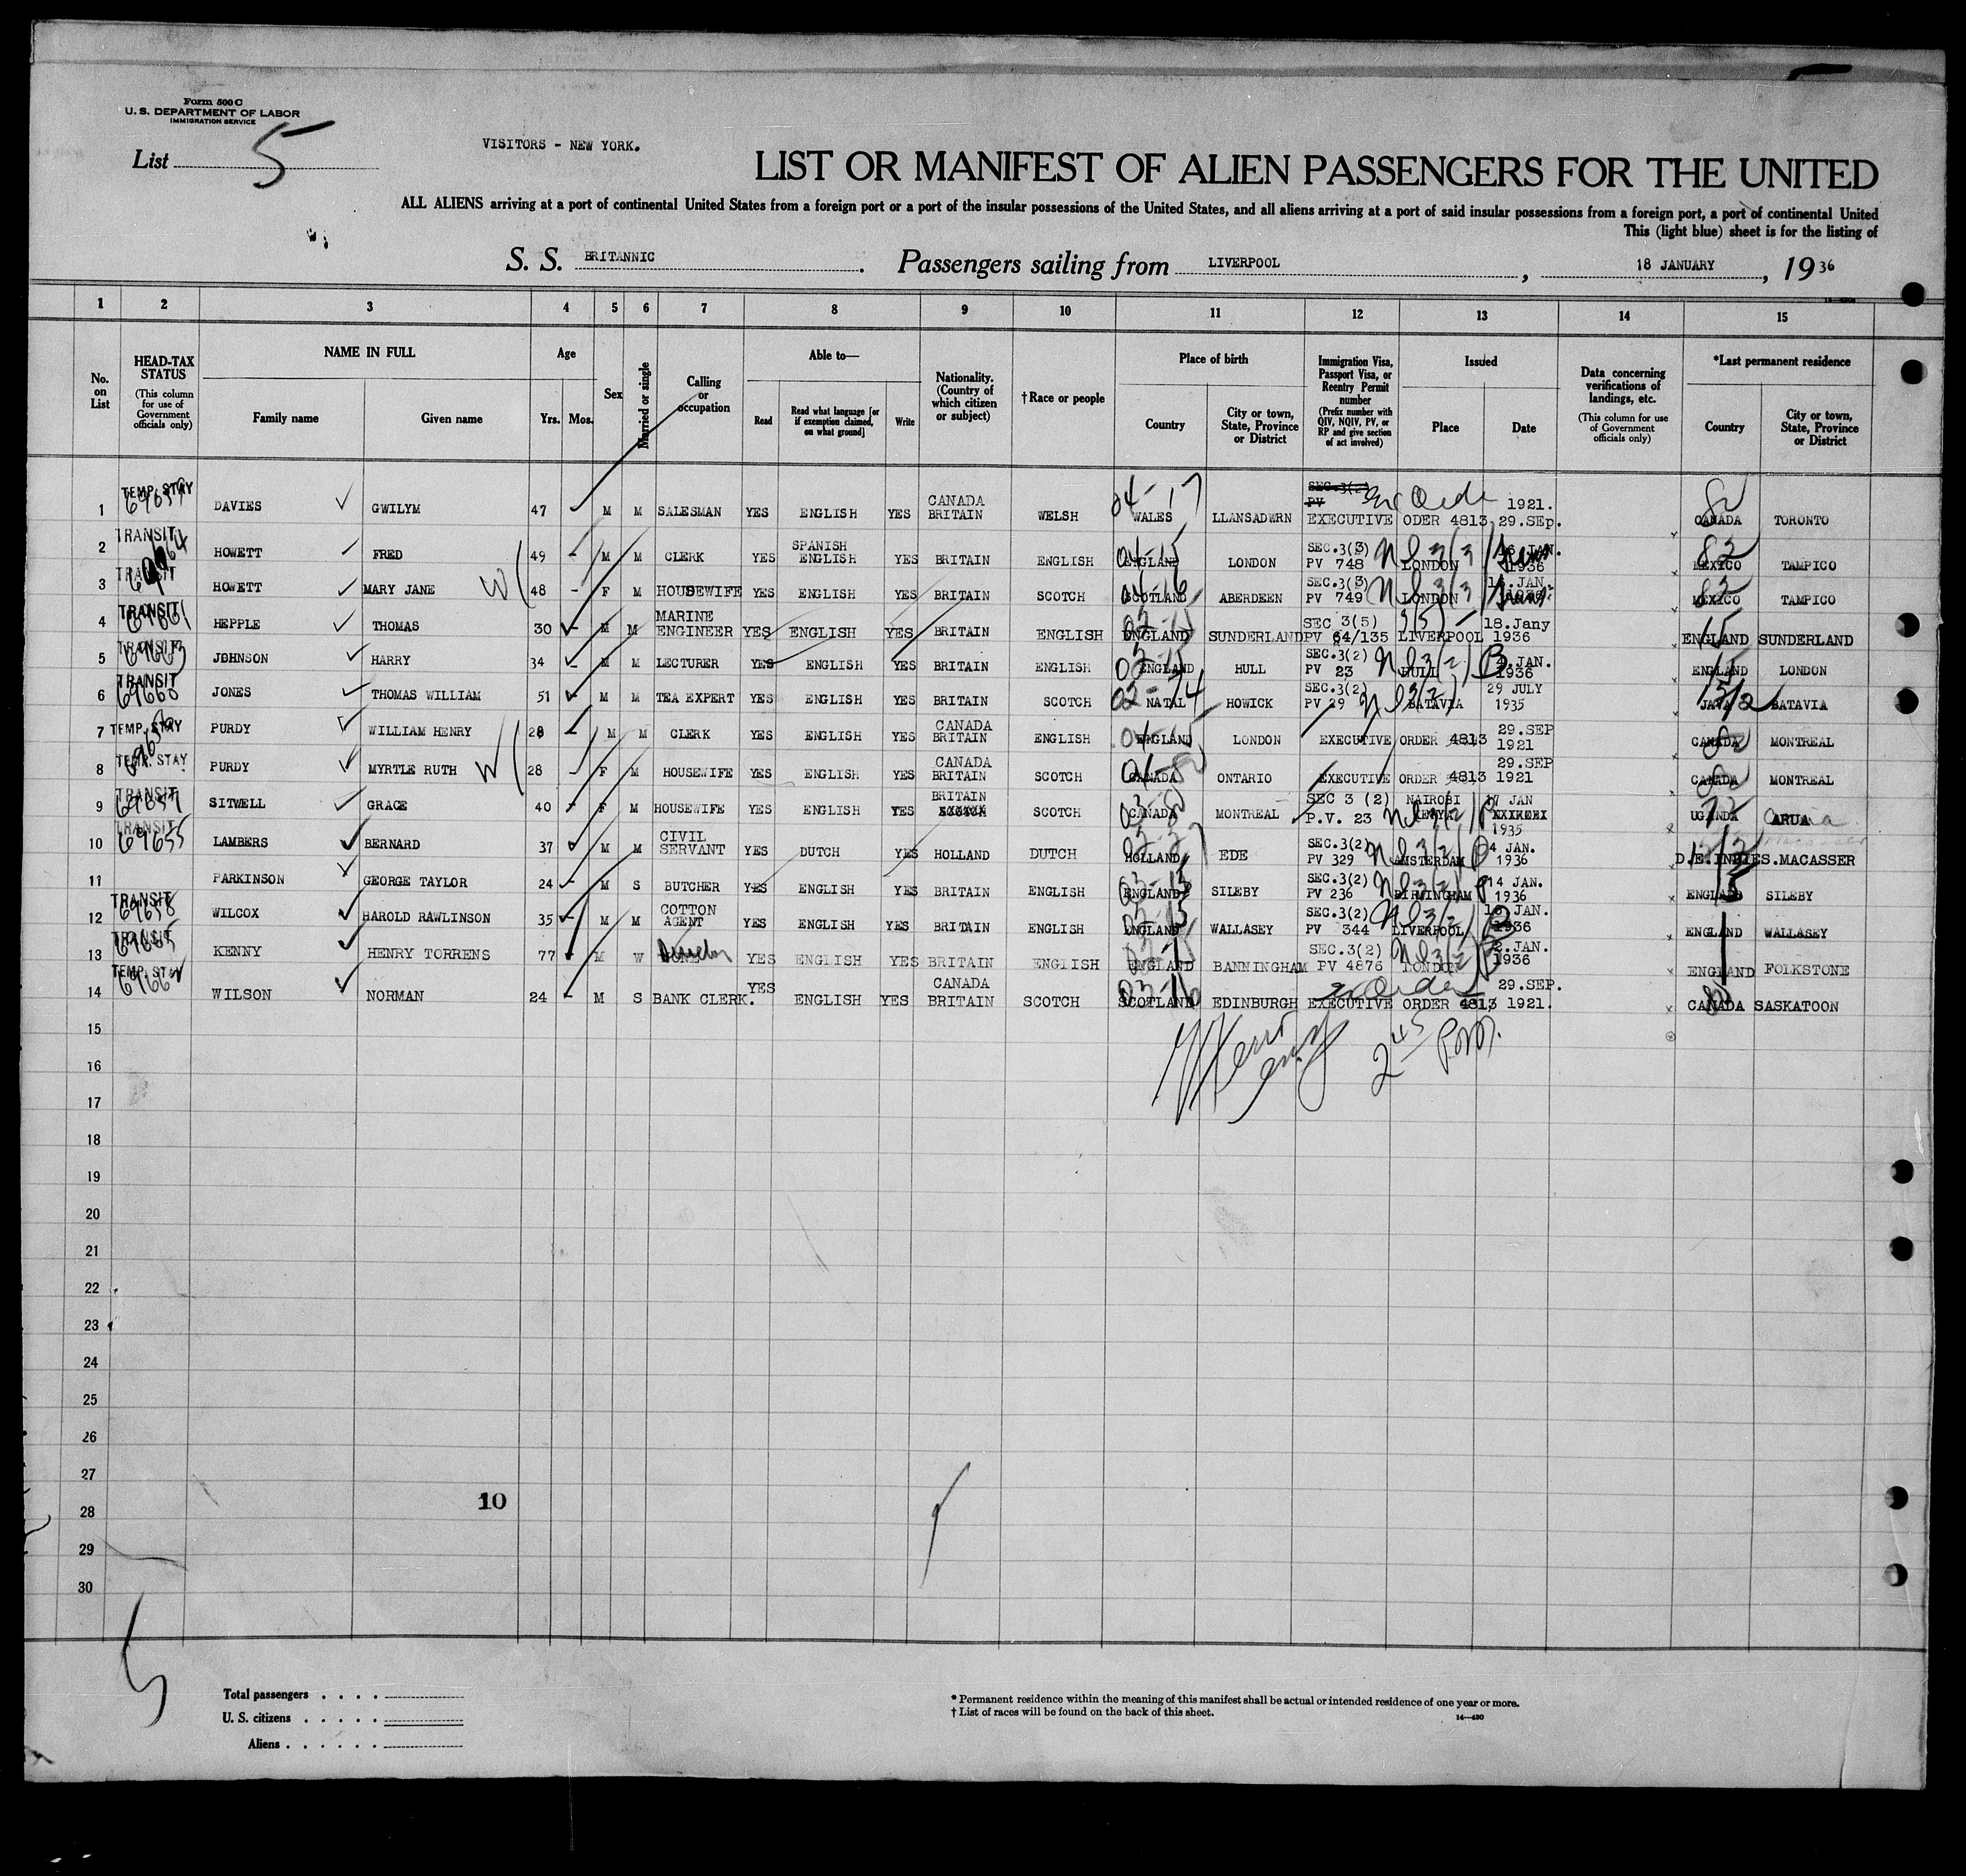 Form 500 C
U. S. DEPARTMENT OF LABOR
IMMIGRATION SERVICE
List 5
VISITORS - NEW YORK.
LIST OR MANIFEST OF ALIEN PASSENGERS FOR THE UNITED
ALL ALIENS arriving at a port of continental United States from a foreign port or a port of the insular possessions of the United States, and all aliens arriving at a port of said insular possessions from a foreign port, a port of continental United
This (light blue) sheet is for the listing of
S. S. BRITANNIC. Passengers sailing from LIVERPOOL, 18 JANUARY, 1936
1 2 3 4 5 6 7 8 9 10 11 12 13 14 15
No. on List
HEAD-TAX STATUS
(This column for use of Government officials only)
NAME IN FULL
Family name Given name
Age
Yrs. Mos.
Sex
Married or single
Calling or occupation
Able to—
Read Read what language [or if exemption claimed, on what ground] Write
Nationality. (Country of which citizen or subject)
†Race or people
Place of birth
Country City or town, State, Province or District
Immigration Visa, Passport Visa, or Reentry Permit number
(Prefix number with QIV, NQIV, PV, or RP and give section of act involved)
Issued
Place Date
Data concerning verifications of landings, etc.
(This column for use of Government officials only)
*Last permanent residence
Country City or town, State, Province or District
1 TEMP. STAY DAVIES GWILYM 47 M M SALESMAN YES ENGLISH YES CANADA BRITAIN WELSH 04-17 WALES LLANSADWRN SEC.3(2) PV EXECUTIVE ODER 4813 29.SEp. 1921. CANADA TORONTO
2 TRANSIT HOWETT FRED 49 - M M CLERK YES SPANISH ENGLISH YES BRITAIN ENGLISH ENGLAND LONDON SEC.3(3) PV 748 LONDON JAN. 1936 MEXICO TAMPICO
3 TRANSIT HOWETT MARY JANE W 48 - F M HOUSEWIFE YES ENGLISH YES BRITAIN SCOTCH SCOTLAND ABERDEEN SEC.3(3) PV 749 LONDON JAN. MEXICO TAMPICO
4 TRANSIT 69661 HEPPLE THOMAS 30 - M M MARINE ENGINEER YES ENGLISH YES BRITAIN ENGLISH ENGLAND SUNDERLAND SEC 3(5) PV 64/135 LIVERPOOL 18.Jany 1936 ENGLAND SUNDERLAND
5 TRANSIT 69663 JOHNSON HARRY 34 - M M LECTURER YES ENGLISH YES BRITAIN ENGLISH ENGLAND HULL SEC.3(2) PV 23 HULL JAN. 1936 ENGLAND LONDON
6 TRANSIT 69660 JONES THOMAS WILLIAM 51 - M M TEA EXPERT YES ENGLISH YES BRITAIN SCOTCH NATAL HOWICK SEC.3(2) PV 29 BATAVIA 29 JULY 1935 JAVA BATAVIA
7 TEMP. STAY PURDY WILLIAM HENRY 28 - M M CLERK YES ENGLISH YES CANADA BRITAIN ENGLISH ENGLAND LONDON EXECUTIVE ORDER 4813 29.SEP 1921 CANADA MONTREAL
8 TEMP. STAY PURDY MYRTLE RUTH W 28 F M HOUSEWIFE YES ENGLISH YES CANADA BRITAIN SCOTCH CANADA ONTARIO EXECUTIVE ORDER 4813 29.SEP 1921 CANADA MONTREAL
9 TRANSIT SITWELL GRACE 40 - F M HOUSEWIFE YES ENGLISH YES BRITAIN SCOTCH CANADA MONTREAL SEC 3 (2) P.V. 23 NAIROBI KENYA 17 JAN 1935 UGANDA ARUA
10 TRANSIT 69655 LAMBERS BERNARD 37 M M CIVIL SERVANT YES DUTCH YES HOLLAND DUTCH HOLLAND EDE SEC.3(2) PV 329 AMSTERDAM 4 JAN. 1936 D.E.INDIES.MACASSER
11 PARKINSON GEORGE TAYLOR 24 - M S BUTCHER YES ENGLISH YES BRITAIN ENGLISH ENGLAND SILEBY SEC.3(2) PV 236 BIRMINGHAM 14 JAN. 1936 ENGLAND SILEBY
12 TRANSIT 69658 WILCOX HAROLD RAWLINSON 35 - M M COTTON AGENT YES ENGLISH YES BRITAIN ENGLISH ENGLAND WALLASEY SEC.3(2) PV 344 LIVERPOOL JAN. 1936 ENGLAND WALLASEY
13 TRANSIT 69665 KENNY HENRY TORRENS 77 M W YES ENGLISH YES BRITAIN ENGLISH ENGLAND BANNINGHAM SEC.3(2) PV 4876 LONDON 2.JAN. 1936 ENGLAND FOLKSTONE
14 TEMP. STAY 69662 WILSON NORMAN 24 - M S BANK CLERK. YES ENGLISH YES CANADA BRITAIN SCOTCH SCOTLAND EDINBURGH EXECUTIVE ORDER 4813 29.SEP. 1921. CANADA SASKATOON
15
2 45 P.M.
16
17
18
19
20
21
22
23
24
25
26
27
10
28
29
30
5
Total passengers
U. S. citizens
Aliens
* Permanent residence within the meaning of this manifest shall be actual or intended residence of one year or more.
† List of races will be found on the back of this sheet.
14—430